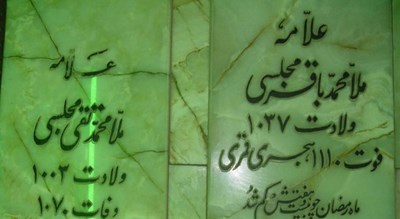 علاّمه
ملاّ محمّد باقر مجلسی
ولادت ۱۰۳۷
فوت ۱۱۱۰ هجری قمری
ماه رمضان چو بیست و هفتش کم شد
علاّمه
ملاّ محمّد تقی مجلسی
ولادت ۱۰۰۳
وفات ۱۰۷۰